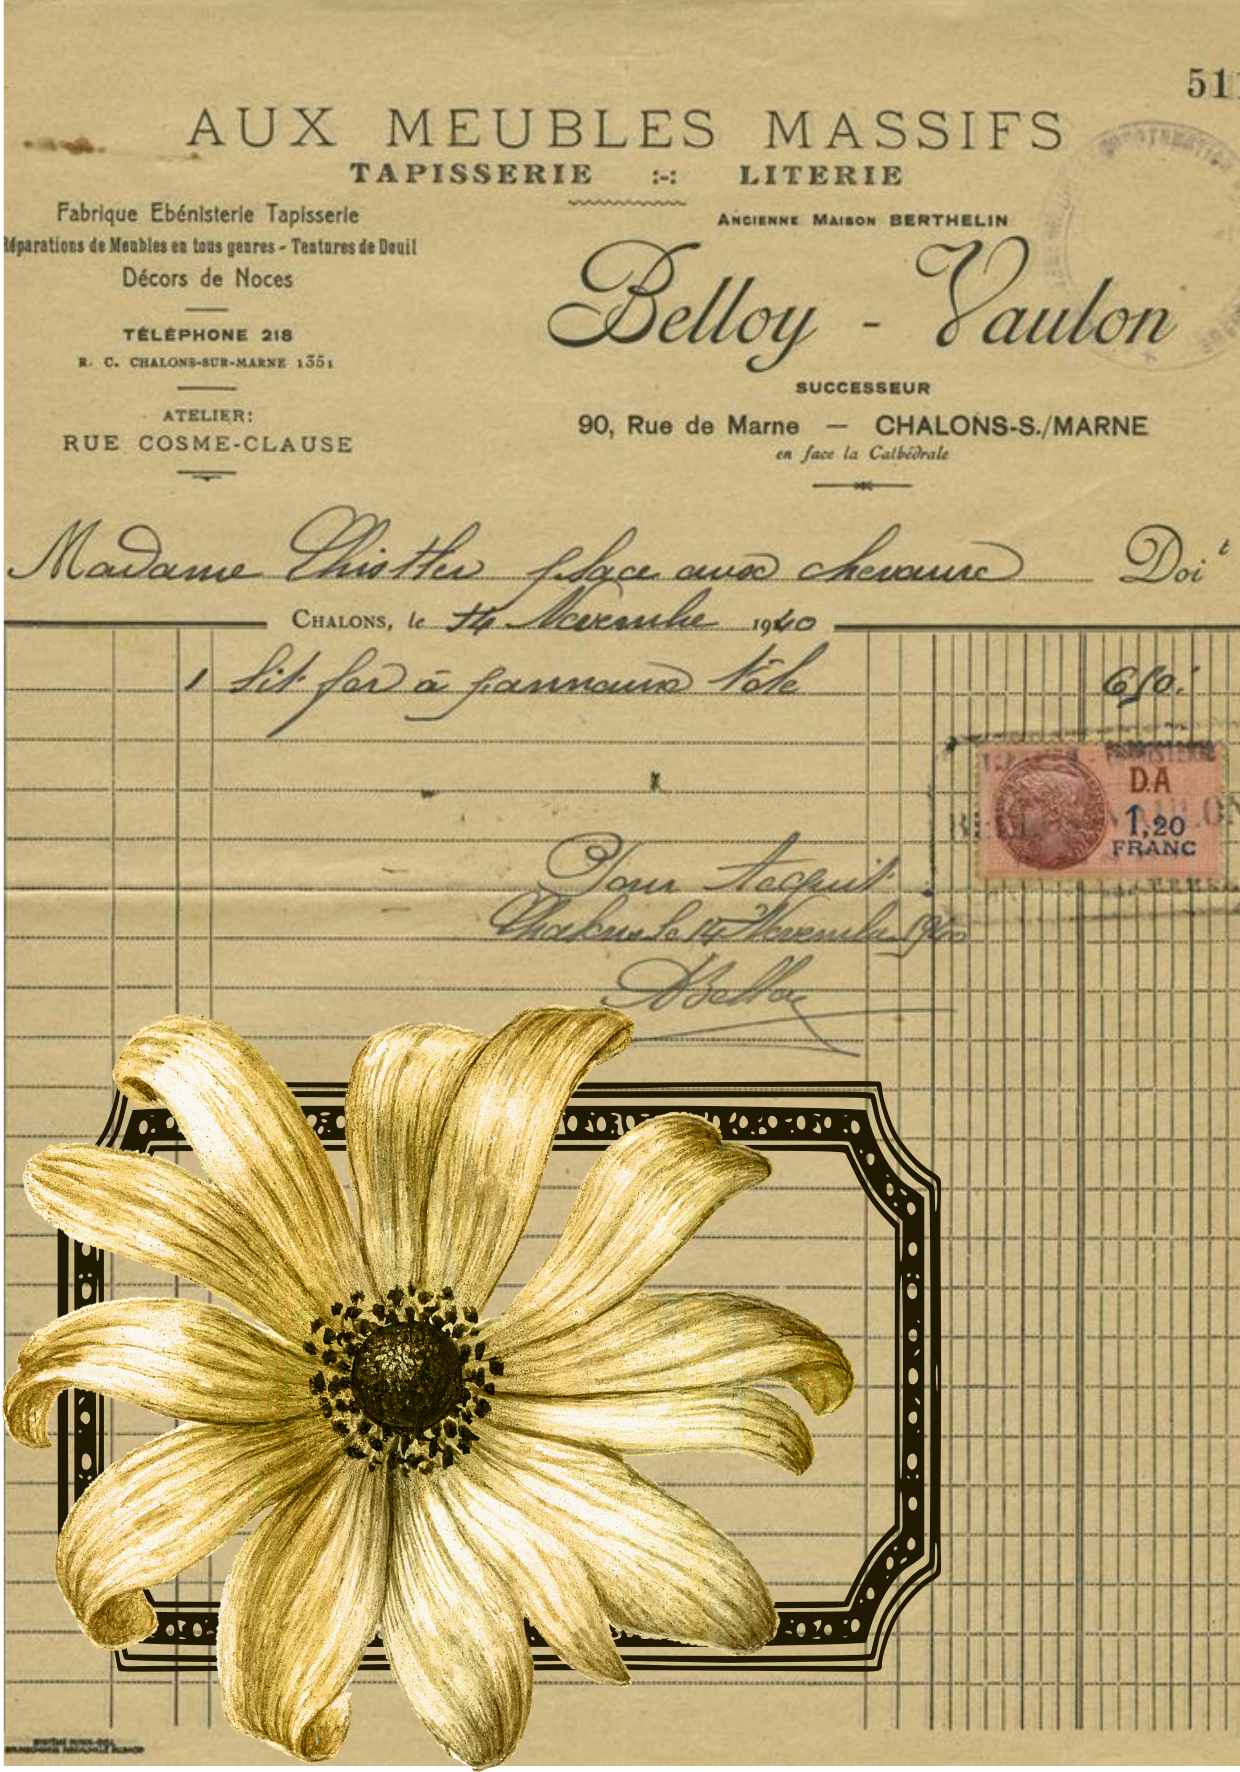 511
AUX MEUBLES MASSIFS
TAPISSERIE :-: LITERIE
Fabrique Ebénisterie Tapisserie
Réparations de Meubles en tous genres - Tentures de Deuil
Décors de Noces
TÉLÉPHONE 218
R. C. CHALONS-SUR-MARNE 1351
ATELIER:
RUE COSME-CLAUSE
ANCIENNE MAISON BERTHELIN
Belloy - Vaulon
SUCCESSEUR
90, Rue de Marne — CHALONS-S./MARNE
en face la Cathédrale
Madame place aux chevaux Doit
CHALONS, le 14 Novembre 1940
1 lit fer à panneaux tôle 650.
D.A
1,20
FRANC
Pour Acquit
Chalons le 14 Novembre 1940
ABelloy